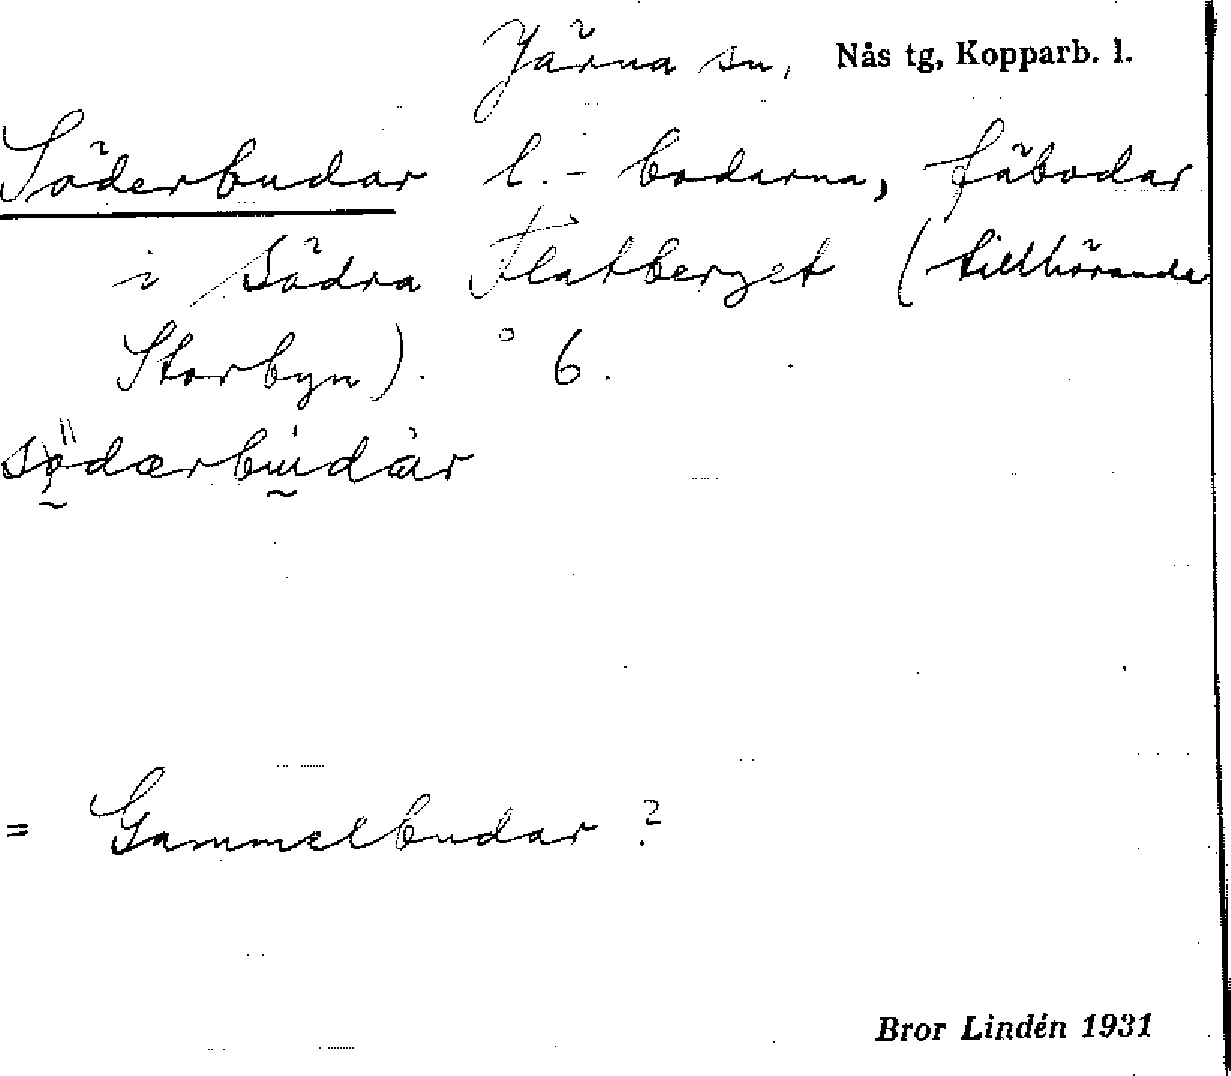 Järna sn, Nås tg, Kopparb. l.
Söderbudar l. -bodarna, fäbodar
i Södra Flatberget (tillhörande
Storbyn). ° 6.
södærbudàr
= Gammelbudar ?
Bror Lindén 1931